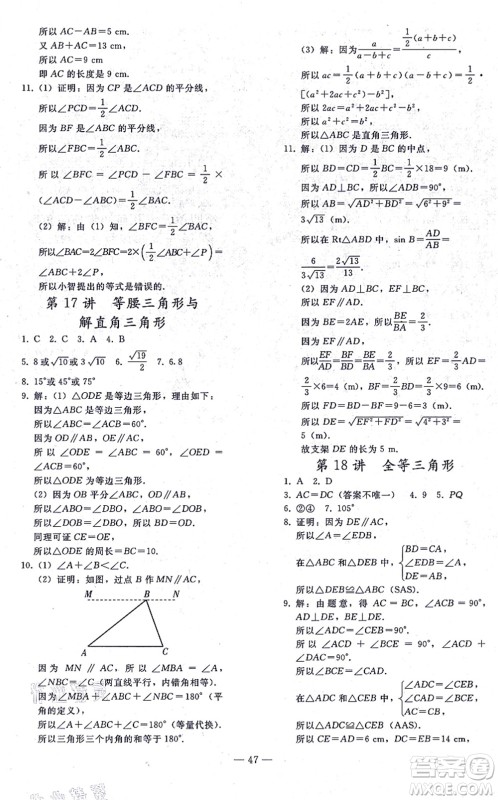 所以 AB+AC+5=5 cm.
又 AB+AC=13 cm,
所以 AC=9 cm
即 AC 的长度是 9 cm.
11. (1) 证明：因为 CP 是∠ACD 的平分线，
所以∠PCD=1/2∠ACD.
因为 BF 是∠ABC 的平分线，
所以∠FBC=1/2∠ABC，所以∠BFC=1/2×
(∠ACD-∠ABC)=1/2∠BAC.
(2) 解：由 (1) 知，∠BFC=1/2∠BAC，
所以∠BAC=2∠BFC=2×(1/2∠ABC+∠P)=
∠ABC+2∠P，
所以小智提出的等式是错误的.
第 17 讲 等腰三角形与
解直角三角形
1. C 2. C 3. A 4. A
5. 8 或√10或 3√10 6. √19/2 7. 6.8
8. 15°或 45°或 75°
9. 解：(1) △ODE 是等边三角形，理由如下：
因为△ABC 是等边三角形，
所以∠ABC=∠ACB=60°.
因为 OD∥AB，OE∥AC，
所以∠ODE =∠ABC=60°，∠OED=∠ACB=
60°.
所以△ODE 为等边三角形.
(2) 因为 OB 平分∠ABC，OD∥AB，
所以∠ABO=∠DOB，∠ABO=∠DBO，
所以∠DOB=∠DBO，所以 BD=OD.
同理可证 CE=OE.
所以△ODE 的周长=BC=10.
10. (1) ∠A+∠B<∠C.
(2) 证明：如图，过点 B 作 MN∥AC，
M B N
A C
因为 MN ∥ AC，所以 ∠MBA =∠A，∠NBC
=∠C (两直线平行，内错角相等).
因为∠MBA+∠ABC+∠NBC=180° (平
角的定义)，
所以∠A+∠ABC+∠C=180° (等量代换)，
所以三角形三个内角的和等于 180°.
(3) 解：因为a/(a-b+c)=1/2(a+b+c)/c，
所以 ac=1/2(a-b+c)(a+b+c)=1/2
[(a²+2ac+c²)-b²]，
所以 2ac=a²+2ac+c²-b²，
所以 a²+c²=b²，
所以△ABC 是直角三角形.
11. 解：(1) 因为 D 是 BC 的中点，
所以 BD=CD=1/2BC=1/2×18=9 (m).
因为 AD⊥BC，所以∠ADB=90°，
所以 AB=√(AD²+BD²)=√(6²+9²)=
3√13 (m).
所以 在 Rt△ABD 中，sin B=AD/AB=
6/(3√13)=2√13/13.
(2) 因为 AD⊥BC，EF⊥BC，
所以 EF∥AD.
因为 BE=2AE，所以BE/BA=2/3.
所以EF/AD=BF/BD=BE/BA=2/3，所以 EF=2/3AD=
2/3×6=4 (m)，BF=2/3BD=2/3×9=6 (m)，
所以 DF=BD-BF=9-6=3 (m).
所以 DE=√(EF²+DF²)=√(4²+3²)=5
(m).
故支架 DE 的长为 5 m.
第 18 讲 全等三角形
1. A 2. D
3. AC=DC (答案不唯一) 4. 9 5. PQ
6. ②④ 7. 105°
8. 证明：因为 DE∥AC，
所以∠EDB=∠C.
在△ABC 和△DEB 中，{BD=CA, ∠EDB=∠C, DE=CB,
所以△ABC≌△BED (SAS).
9. 解：由题意，得 AC=BC，∠ACB=90°，
AD⊥DE，BE⊥DE，
所以∠ADC=∠CEB=90°，
所以∠ACD+∠BCE=90°，
∠ACD+∠DAC=90°，
所以∠BCE=∠DAC.
在△ADC 和△CEB 中，{∠ADC=∠CEB, ∠DAC=∠BCE, AC=CB,
所以△ADC≌△CEB (AAS).
所以 CE=AD=6 cm，DC=BE=14 cm，
— 47 —